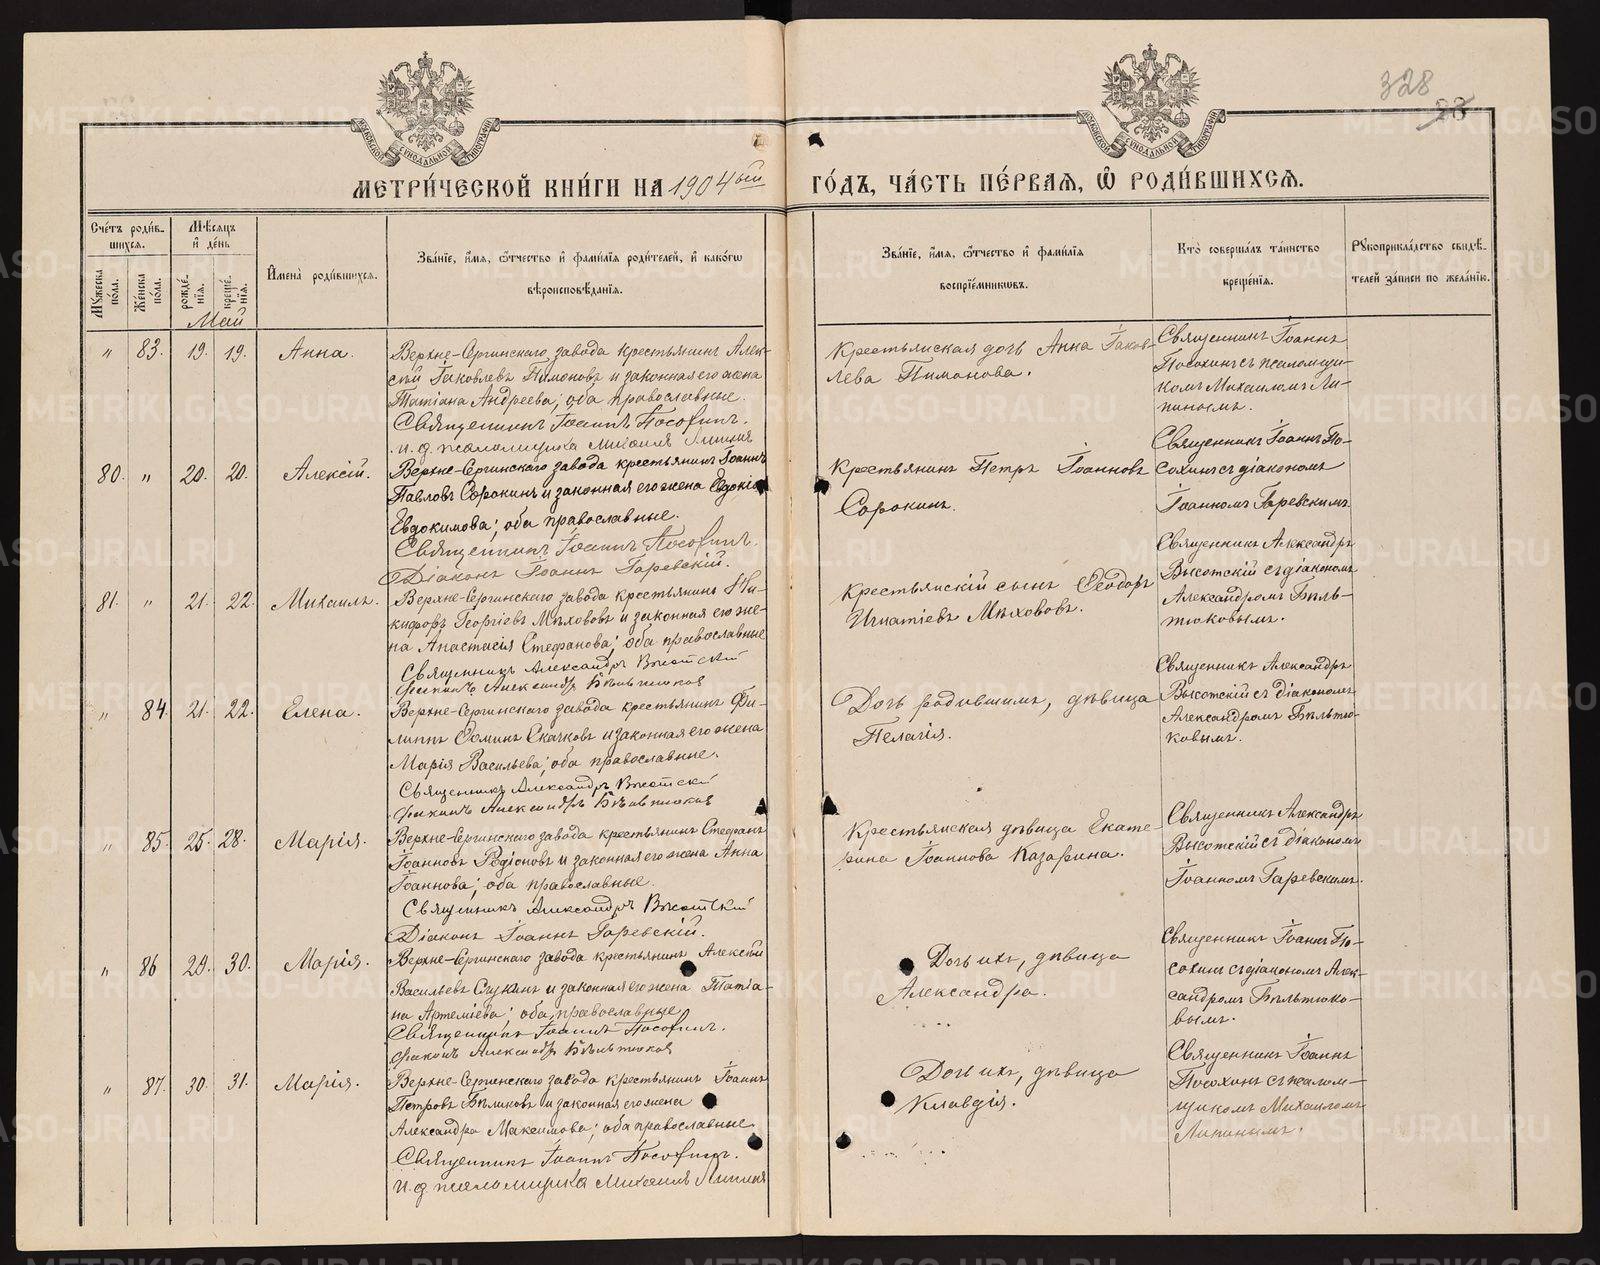 328
23
МОСКОВСКОЙ СѴНОДАЛЬНОЙ ТИПОГРАФІИ
МОСКОВСКОЙ СѴНОДАЛЬНОЙ ТИПОГРАФІИ
МЕТРИ́ЧЕСКОЙ КНИ́ГИ НА 1904ый
ГО́ДЪ, ЧА́СТЬ ПЕ́РВАЯ, Ѡ҆ РОДИ́ВШИХСЯ.
Сче́тъ роди́в-
шихся.
Мѣ́сяцъ
и҆ де́нь
Мꙋ́жеска
по́ла.
Же́нска
по́ла.
рожде́-
нїя.
креще́-
нїя.
И҆мена̀ роди́вшихся.
Зва́нїе, и҆́мя, ѻ҆́тчество и҆ фами́лїа роди́телей, и҆ како́гѡ
вѣроисповѣ́данїя.
Зва́нїе, и҆́мя, ѻ҆́тчество и҆ фами́лїа
воспрїе́мникѡвъ.
Кто̀ соверша́лъ та́инство
креще́нїя.
Рꙋкоприкла́дство свидѣ́-
телей за́писи по жела́нїю.
Май
" 83. 19. 19. Анна.
Верхне-Сергинскаго завода крестьянинъ Алек-
сѣй Іаковлевъ Пимоновъ и законная его жена
Татіана Андреева; оба православные.
Священникъ Іоаннъ Посохинъ.
и. д. псаломщика Михаилъ Липинъ
Крестьянская дочь Анна Іаков-
лева Пимонова.
Священникъ Іоаннъ
Посохинъ съ псаломщи-
комъ Михаиломъ Ли-
пинымъ.
80. " 20. 20. Алексій.
Верхне-Сергинскаго завода крестьянинъ Іоаннъ
Павловъ Сорокинъ и законная его жена Евдокія
Евдокимова; оба православные.
Священникъ Іоаннъ Посохинъ.
Діаконъ Іоаннъ Гаревскій.
Крестьянинъ Петръ Іоанновъ
Сорокинъ.
Священникъ Іоаннъ По-
сохинъ съ діакономъ
Іоанномъ Гаревскимъ.
81. " 21. 22. Михаилъ.
Верхне-Сергинскаго завода крестьянинъ Ни-
кифоръ Георгіевъ Мѣхововъ и законная его же-
на Анастасія Стефанова; оба православные
Священникъ Александръ Высотскій
Діаконъ Александръ Бѣльтюковъ
Крестьянскій сынъ Ѳеодоръ
Игнатіевъ Мѣхововъ.
Священникъ Александръ
Высотскій съ діакономъ
Александромъ Бѣль-
тюковымъ.
" 84. 21. 22. Елена.
Верхне-Сергинскаго завода крестьянинъ Фи-
липпъ Ѳоминъ Скачковъ и законная его жена
Марія Васильева; оба православные.
Священникъ Александръ Высотскій
Діаконъ Александръ Бѣльтюковъ
Дочь родившимъ, дѣвица
Пелагія.
Священникъ Александръ
Высотскій съ діакономъ
Александромъ Бѣльтю-
ковымъ.
" 85. 25. 28. Марія.
Верхне-Сергинскаго завода крестьянинъ Стефанъ
Іоанновъ Родіоновъ и законная его жена Анна
Іоаннова; оба православные.
Священникъ Александръ Высотскій
Діаконъ Іоаннъ Гаревскій.
Крестьянская дѣвица Екате-
рина Іоаннова Казарина.
Священникъ Александръ
Высотскій съ діакономъ
Іоанномъ Гаревскимъ.
" 86 29. 30. Марія.
Верхне-Сергинскаго завода крестьянинъ Алексѣй
Васильевъ Сцукинъ и законная его жена Татіа-
на Артеміева; оба православные
Священникъ Іоаннъ Посохинъ.
Діаконъ Александръ Бѣльтюковъ
Дочь ихъ, дѣвица
Александра.
Священникъ Іоаннъ По-
сохинъ съ діакономъ Алек-
сандромъ Бѣльтюко-
вымъ.
" 87. 30. 31. Марія.
Верхне-Сергинскаго завода крестьянинъ Іоаннъ
Петровъ Бѣликовъ и законная его жена
Александра Максимова; оба православные.
Священникъ Іоаннъ Посохинъ.
и. д. псаломщика Михаилъ Липинъ
Дочь ихъ, дѣвица
Клавдія.
Священникъ Іоаннъ
Посохинъ съ псалом-
щикомъ Михаиломъ
Липинымъ.